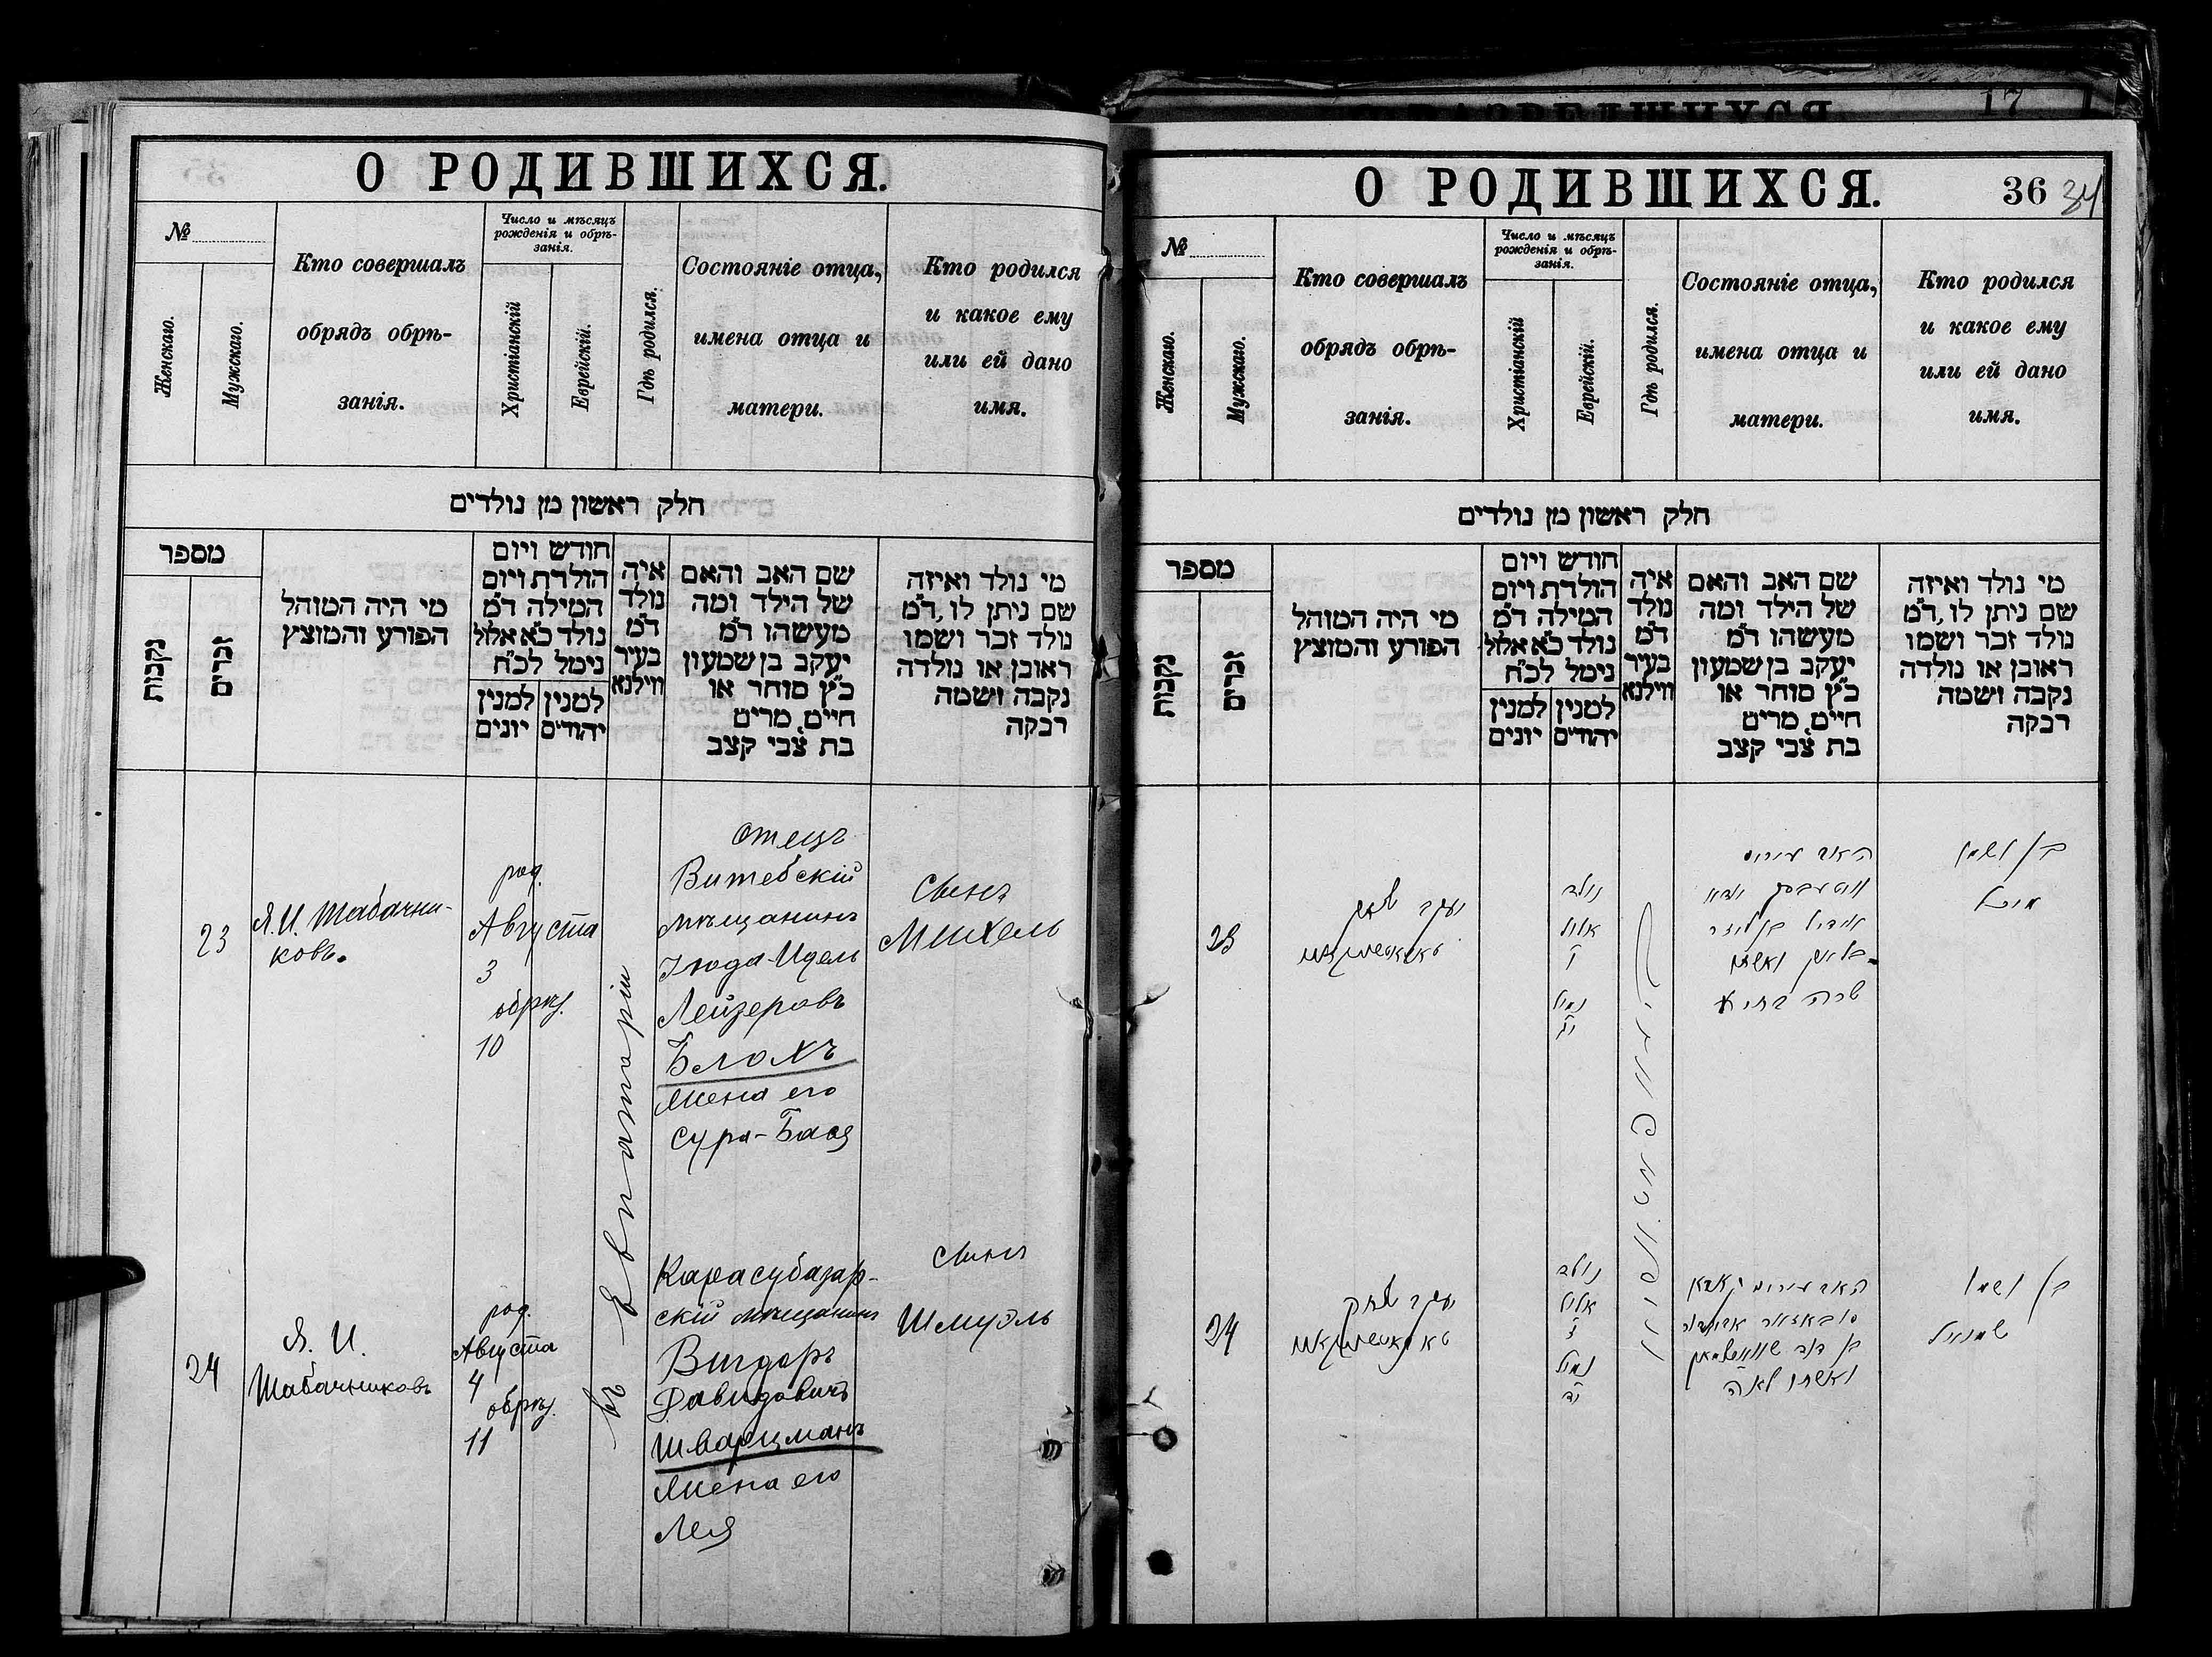 О РОДИВШИХСЯ.
№
Женскаго.
Мужскаго.
Кто совершалъ
обрядъ обрѣ-
занія.
Число и мѣсяцъ
рожденія и обрѣ-
занія.
Христіанскій
Еврейскій.
Гдѣ родился.
Состояніе отца,
имена отца и
матери.
Кто родился
и какое ему
или ей дано
имя.
חלק ראשון מן נולדים
מספר
נקבות
זכרים
מי היה המוהל
הפורע והמוצץ
חודש ויום
הולדת ויום
המילה ד"מ
נולד כ"א אלול
נימל לכ"ח
למנין יהודים
למנין יונים
איה
נולד
ד"מ
בעיר
ווילנא
שם האב והאם
של הילד ומה
מעשהו ד"מ
יעקב בן שמעון
כ"ץ סוחר או
חייט, מרים
בת צבי קצב
מי נולד ואיזה
שם ניתן לו, ד"מ
נולד זכר ושמו
ראובן או נולדה
נקבה ושמה
רבקה
23
Я. И. Шабачни-
ковъ.
род.
Августа
3
обрѣз.
10
въ Евпаторіи
отецъ
Витебскій
мѣщанинъ
Іюда-Идель
Лейзеровъ
Блохъ
жена его
Сура-Бася
Сынъ
Михель
24
Я. И.
Шабачниковъ
род.
Августа
4
обрѣз.
11
Карасубазар-
скій мѣщанинъ
Вигдоръ
Давидовичъ
Шварцманъ
жена его
Лея
сынъ
Шмуэль
17
О РОДИВШИХСЯ.
36 34
№
Женскаго.
Мужскаго.
Кто совершалъ
обрядъ обрѣ-
занія.
Число и мѣсяцъ
рожденія и обрѣ-
занія.
Христіанскій
Еврейскій.
Гдѣ родился.
Состояніе отца,
имена отца и
матери.
Кто родился
и какое ему
или ей дано
имя.
חלק ראשון מן נולדים
מספר
נקבות
זכרים
מי היה המוהל
הפורע והמוצץ
חודש ויום
הולדת ויום
המילה ד"מ
נולד כ"א אלול
נימל לכ"ח
למנין יהודים
למנין יונים
איה
נולד
ד"מ
בעיר
ווילנא
שם האב והאם
של הילד ומה
מעשהו ד"מ
יעקב בן שמעון
כ"ץ סוחר או
חייט, מרים
בת צבי קצב
מי נולד ואיזה
שם ניתן לו, ד"מ
נולד זכר ושמו
ראובן או נולדה
נקבה ושמה
רבקה
23
יעקב יצחק
נולד
אלול
נמול
האב עירוני
בן ושמו
מיכל
24
יעקב יצחק
נולד
אלול
נמול
האב עירוני
בן דוד
ואשתו לאה
בן ושמו
שמואל